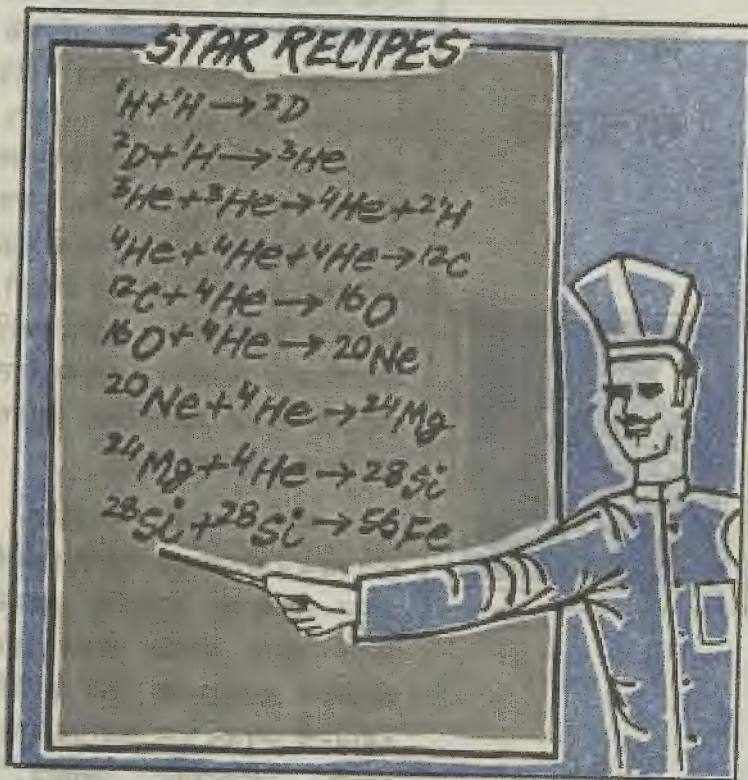 STAR RECIPES
¹H+¹H→²D
²D+¹H→³He
³He+³He→⁴He+2¹H
⁴He+⁴He+⁴He→¹²C
¹²C+⁴He→¹⁶O
¹⁶O+⁴He→²⁰Ne
²⁰Ne+⁴He→²⁴Mg
²⁴Mg+⁴He→²⁸Si
²⁸Si+²⁸Si→⁵⁶Fe